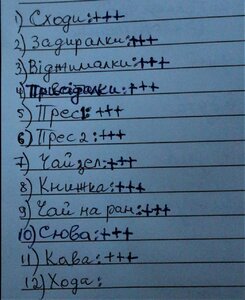 1) Сходи: +++
2) Задиралки: +++
3) Віджималки: +++
4) Присідалки: +++
5) Прес: +++
6) Прес 2: +++
7) Чай зел: +++
8) Книжка: +++
9) Чай на ран: +++
10) Сюва: +++
11) Кава: +++
12) Хода: